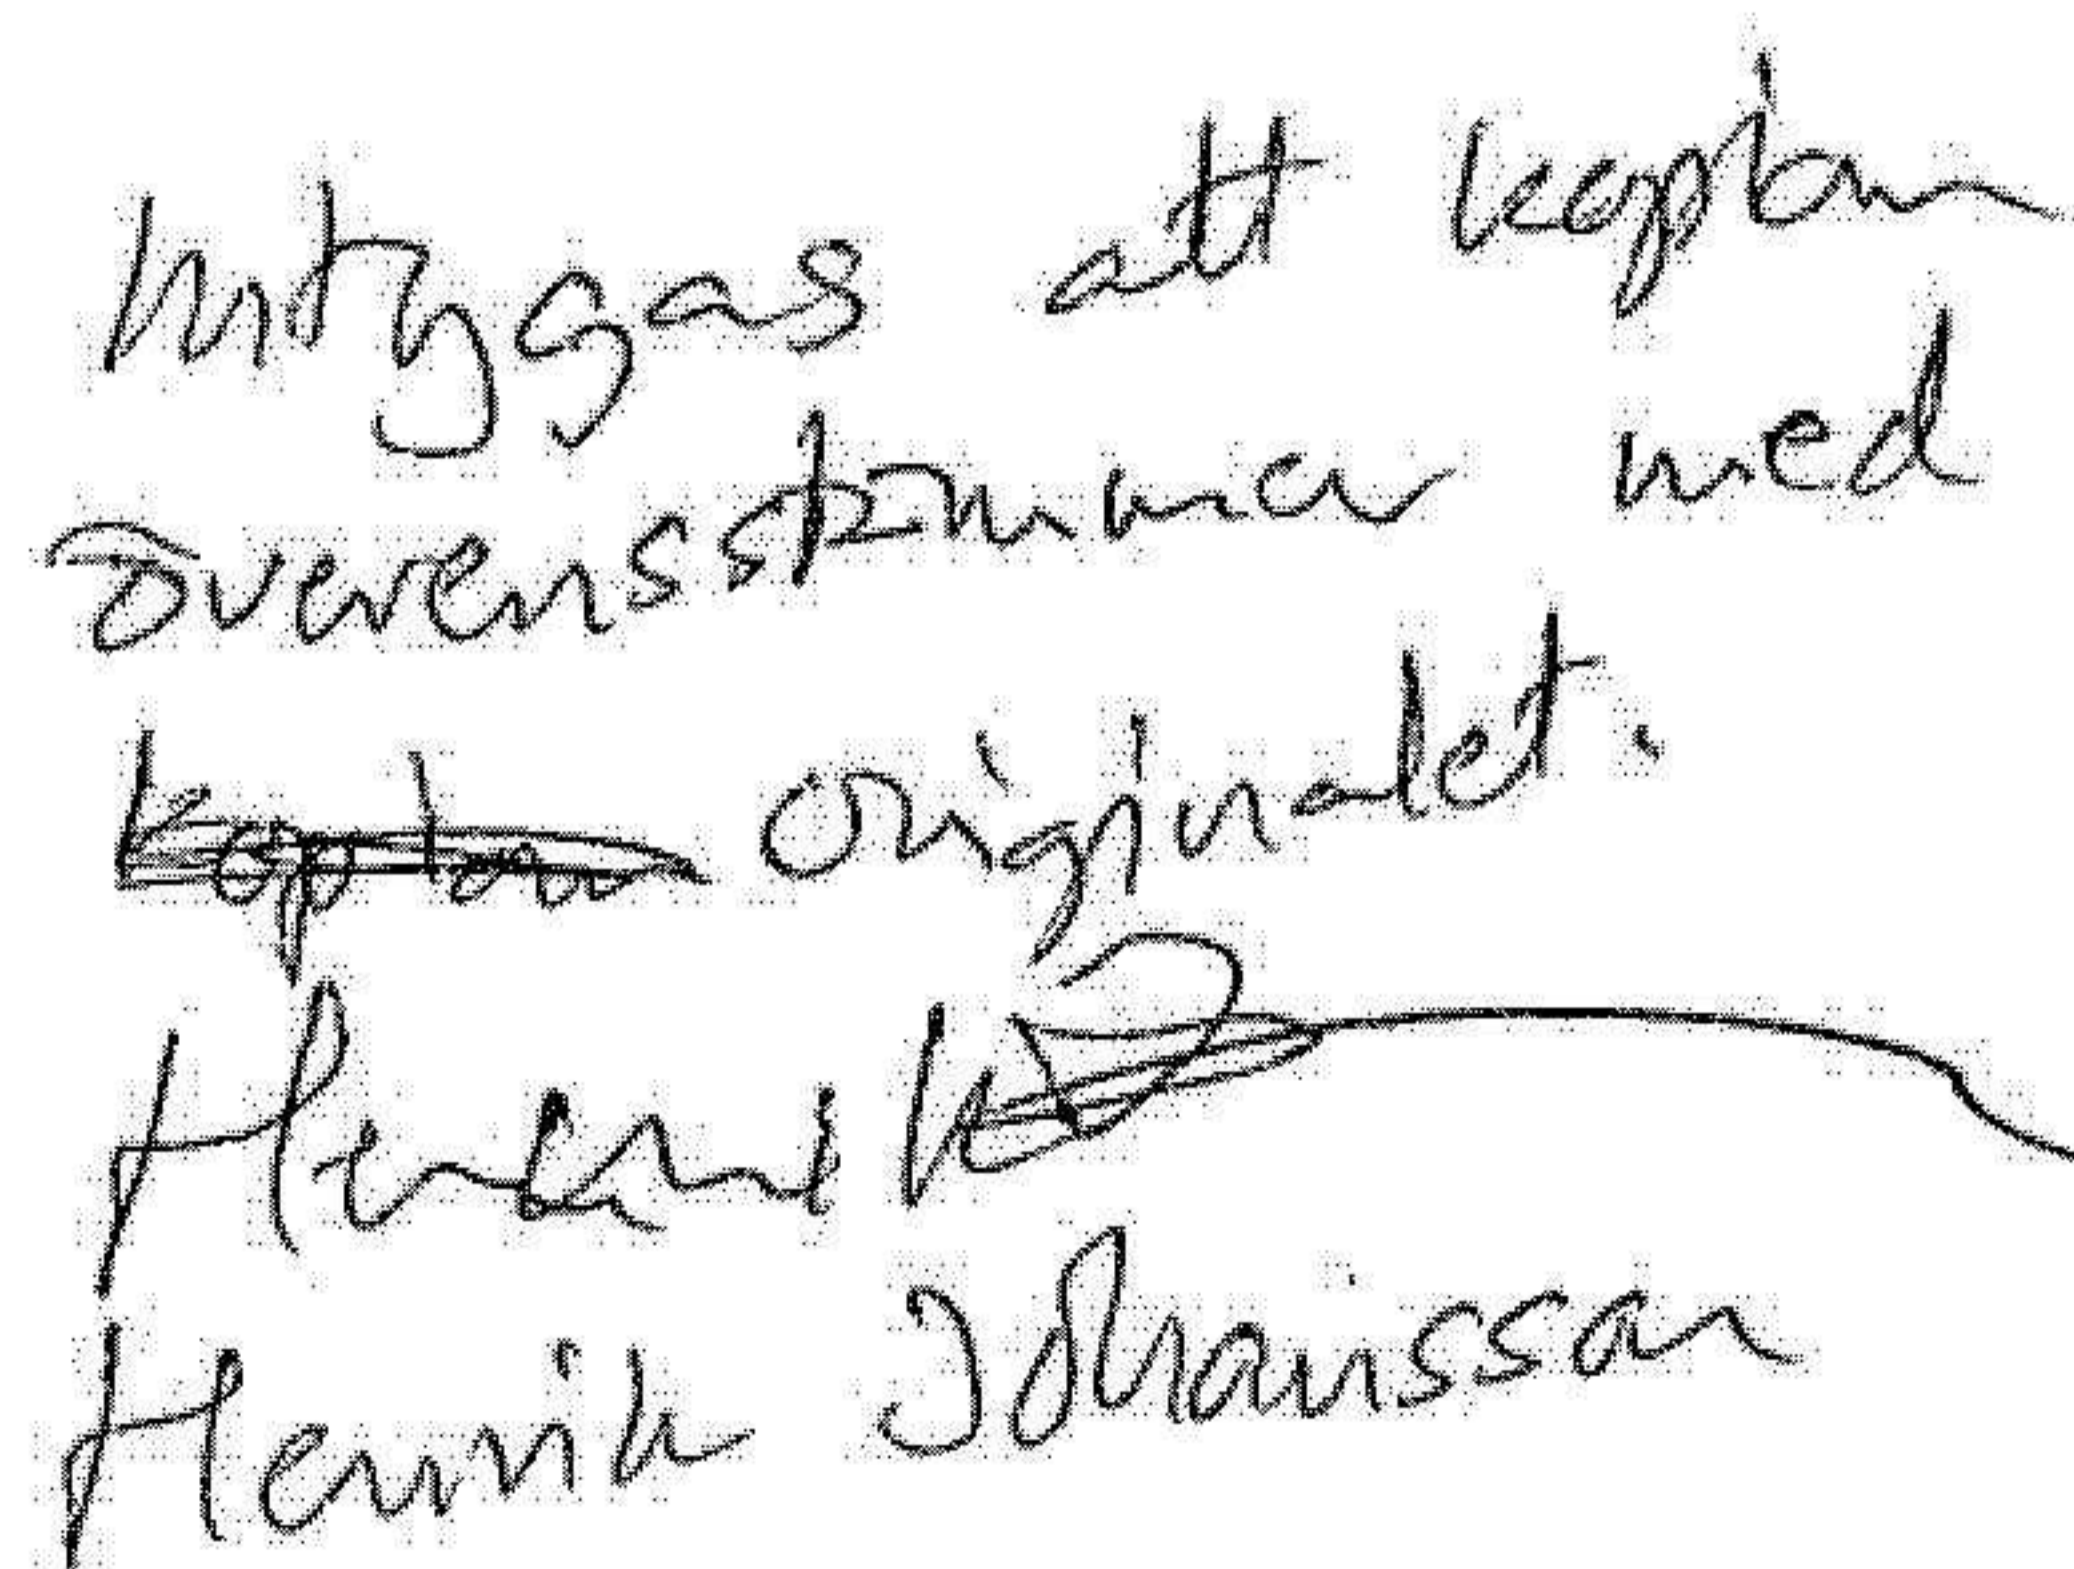 Intygas att kopian
överensstämmer med
kopian originalet.
Henrik
Henrik Johansson